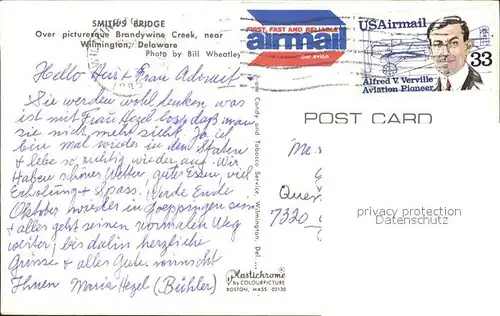 SMITH'S BRIDGE
Over picturesque Brandywine Creek, near
Wilmington, Delaware
Photo by Bill Wheatley
FIRST, FAST AND RELIABLE
airmail
par avion
USAirmail
33
Alfred V. Verville
Aviation Pioneer
Hello Herr + Frau Advocat
Sie werden wohl denken was
ist mit Frau Hezel los, daß man
sie nicht mehr sieht. Ja ich
bin mal wieder in den Staaten
+ lebe so richtig wieder auf. Wir
haben schönes Wetter, gutes Essen, viel
Erholung + Spass. Werde Ende
Oktober wieder in Goeppingen sein
+ alles geht seinen normalen Weg
weiter, bis dahin herzliche
Grüsse + alles Gute wünscht
Ihnen Maria Hezel (Bühler)
Candy and Tobacco Service, Wilmington, Del.
Plastichrome
by COLOURPICTURE
BOSTON, MASS. 02130
POST CARD
7320
privacy protection
www.ansichtskarten-center.de